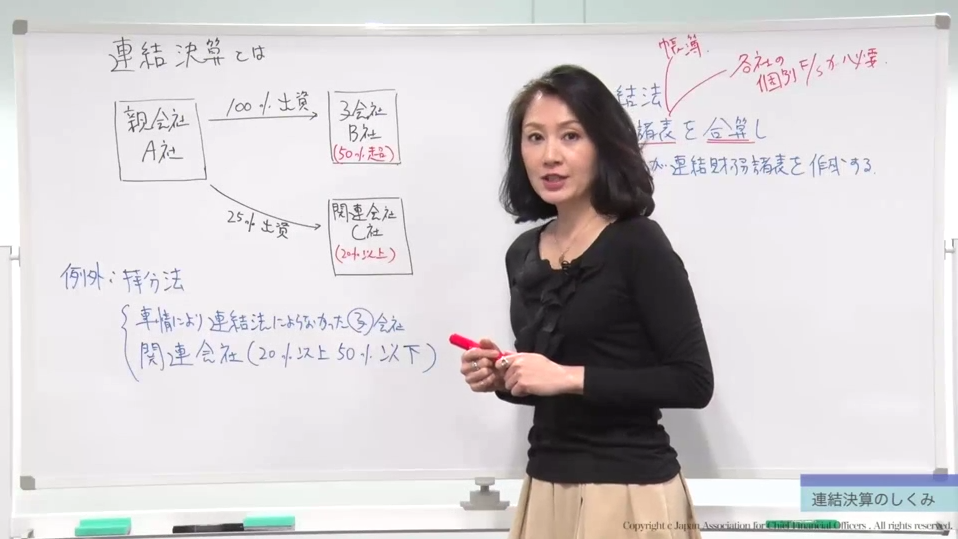 連結決算とは
親会社
A社
100%出資
子会社
B社
(50%超)
25%出資
関連会社
C社
(20%以上)
例外：持分法
事情により連結法によらなかった子会社
関連会社(20%以上50%以下)
帳簿
各社の
個別F/Sが必要.
結法
諸表を合算し
が連結財務諸表を作成する.
連結決算のしくみ
Copyright c Japan Association for Chief Financial Officers . All rights reserved.